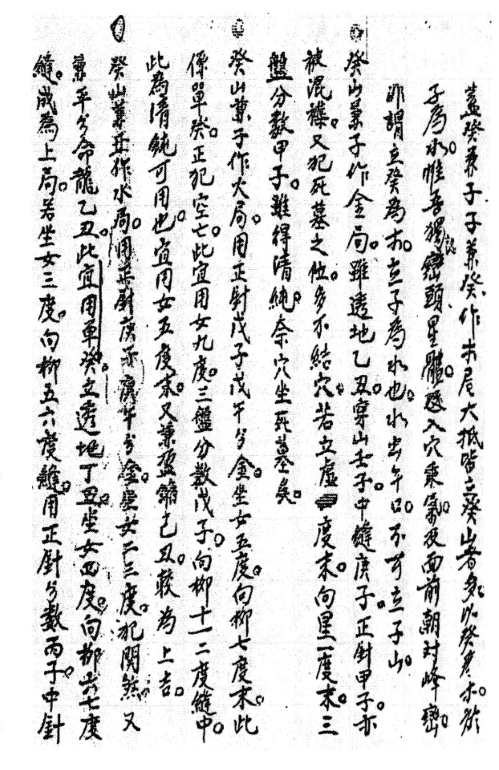 蓋癸兼子子兼癸作木局大抵皆立癸山者多以癸為木於
子為水惟吾獨認巒頭星體 入穴乘氣及面前朝對峰巒
非謂立癸為木立子為水也水出午口不可立子山
癸山兼子作金局雖透地乙丑穿山壬子中縫庚子正針甲子亦
被混雜又犯死墓之位多不結穴若立虛 度末向星一度末三
盤分數甲子雖得清純奈穴坐死墓矣
癸山兼子作火局用正針戊子戊午分金坐女五度向柳七度末此
係單癸正犯空亡此宜用女九度三盤分數戊子向柳十一二度縫中
此為清純可用也宜用女五度末又兼盈縮己丑較為上吉
癸山兼丑作水局用正針庚 庚午分金坐女二三度犯関煞又
兼平分命龍乙丑此宜用單癸立透地丁丑坐女四度向柳六七度
縫成為上局若坐女三度向柳五六度縫用正針分數丙子中針